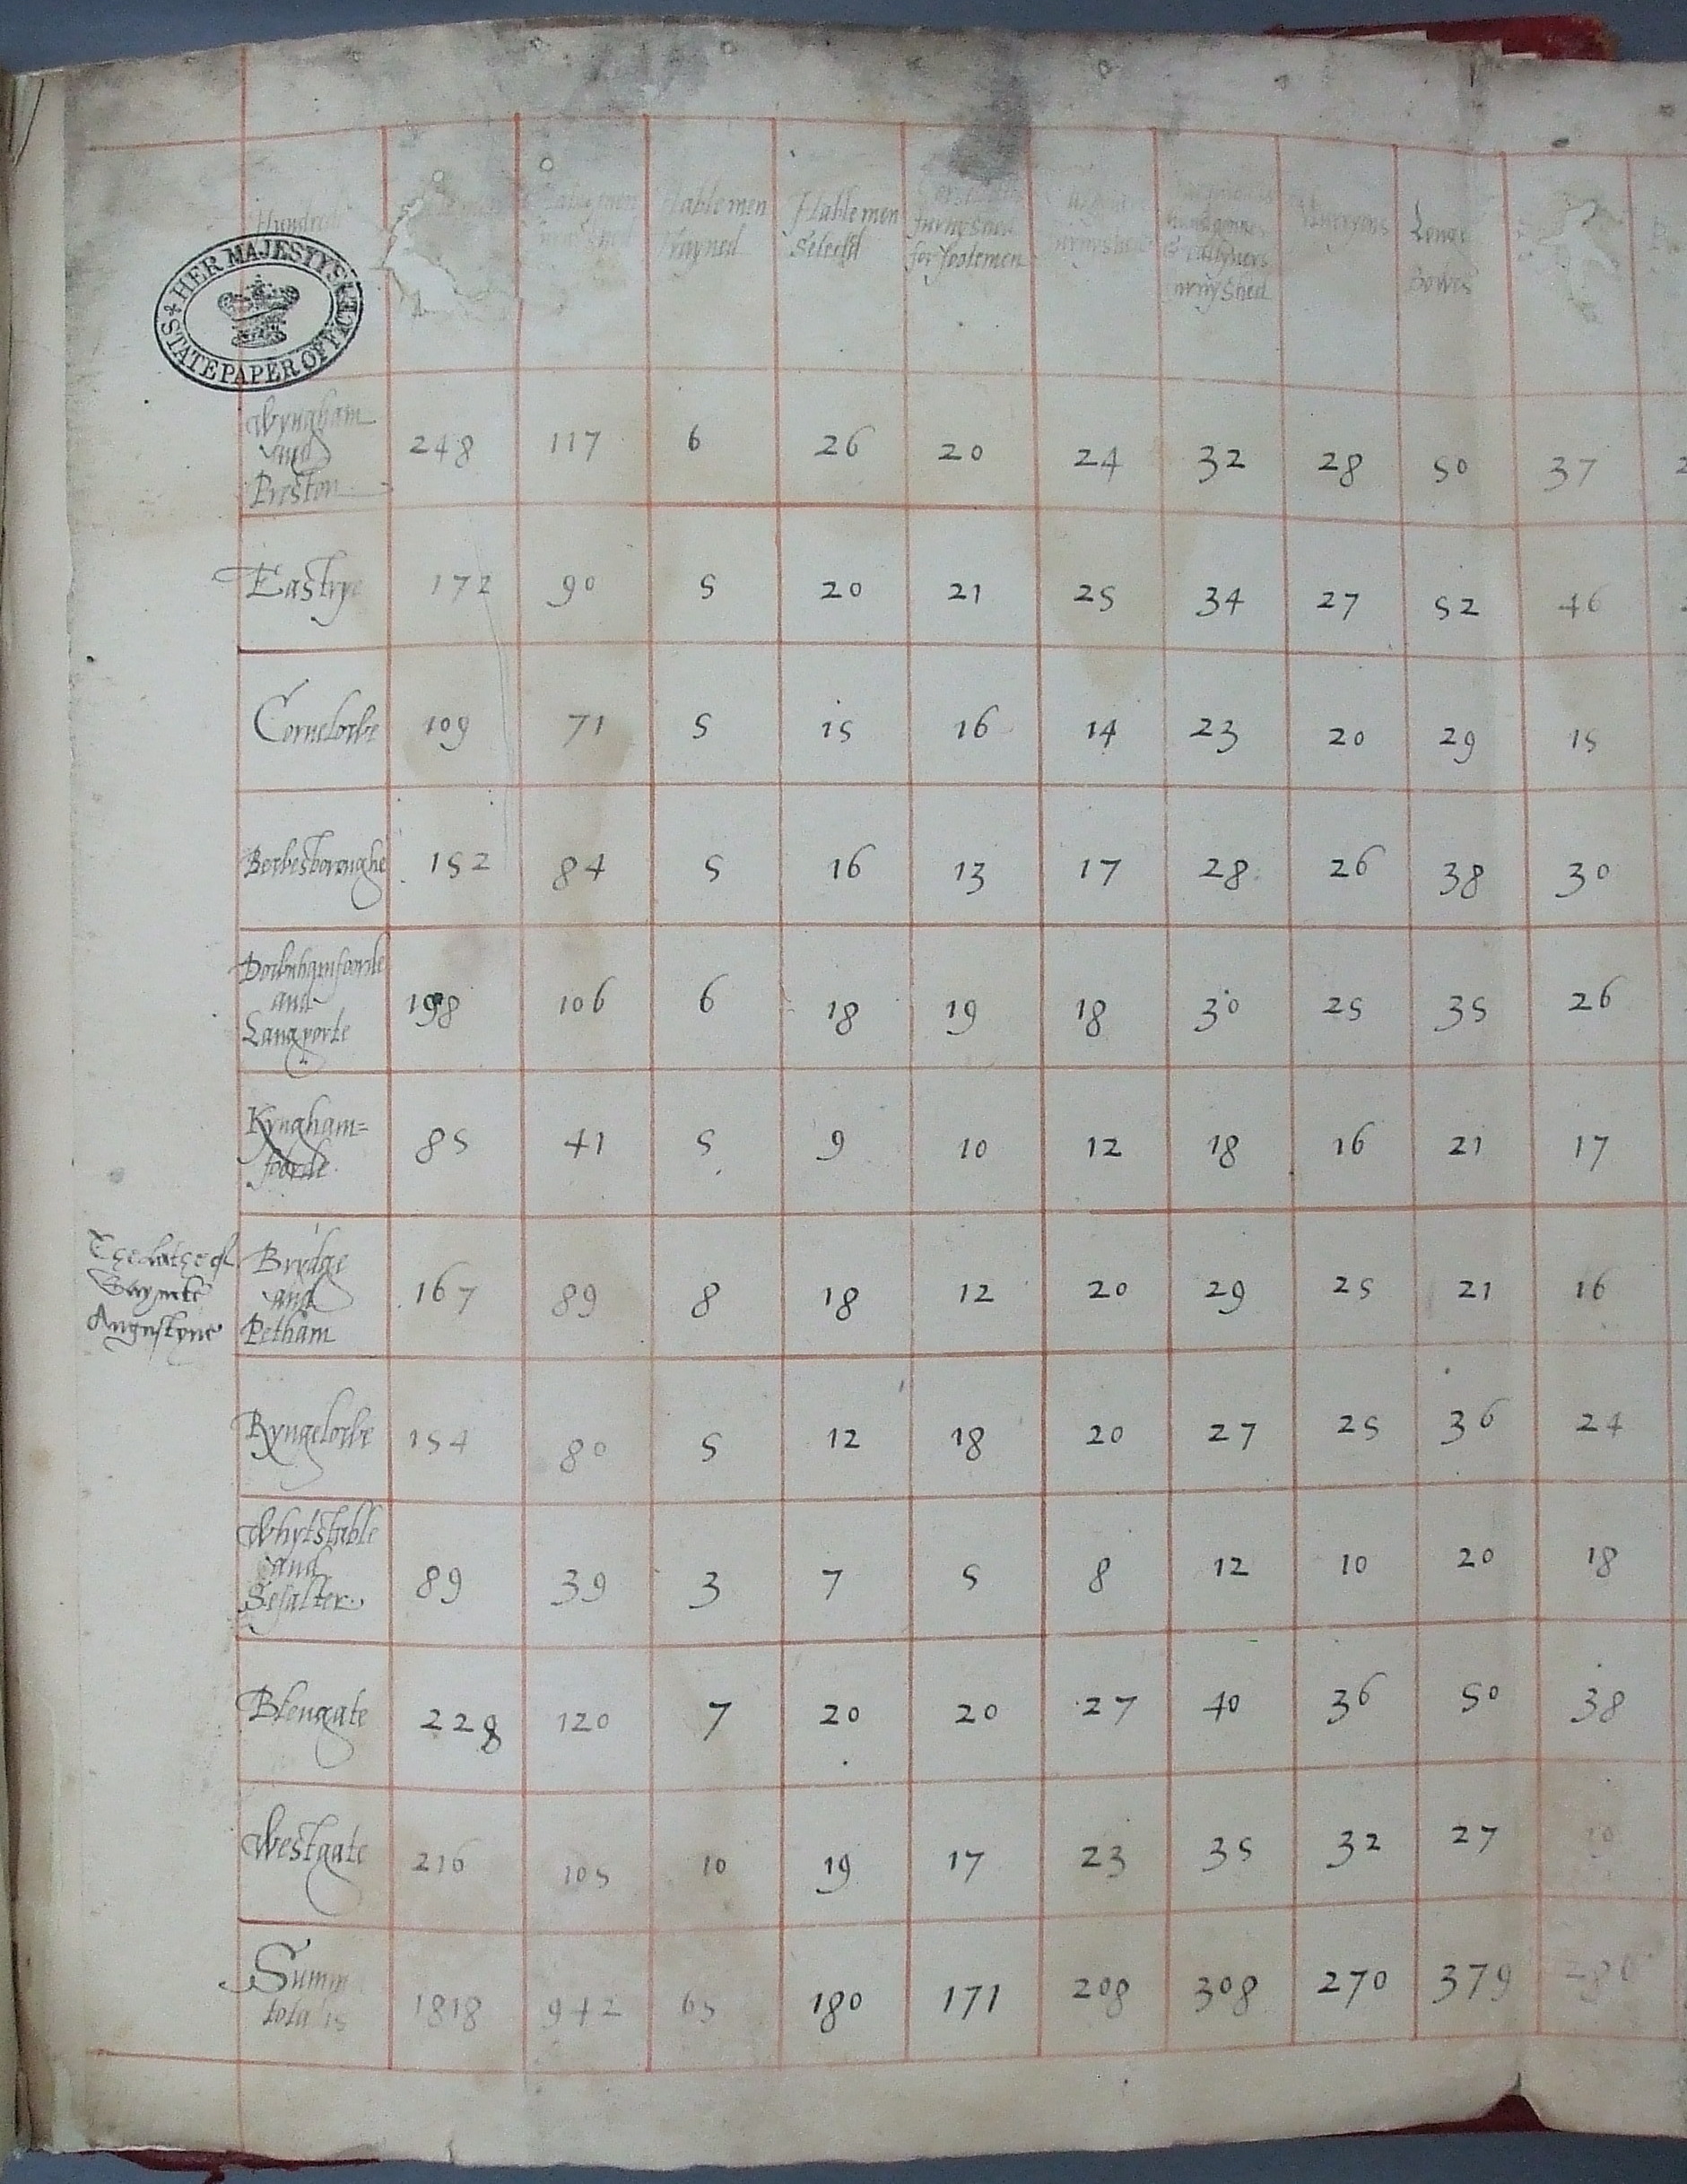 Hundred
Hable men Trayned
Hable men Selected
furnyshed for Footemen
furnyshed
furnyshed
Longe Bowes
HER MAJESTYS STATE PAPER OFFICE
Wyngham and Preston 248 117 6 26 20 24 32 28 50 37
Eastrye 172 90 5 20 21 25 34 27 52 46
Cornelowe 109 71 5 15 16 14 23 20 29 15
Bewesboroughe 152 84 5 16 13 17 28 26 38 30
Downhamfoorde and Langporte 198 106 6 18 19 18 30 25 35 26
Kyngham=foorde 85 41 5 9 10 12 18 16 21 17
The Lathe of Saynte Augustyne
Brydge and Petham 167 89 8 18 12 20 29 25 21 16
Ryngelowe 154 80 5 12 18 20 27 25 36 24
Whytstable and Sesalter 89 39 3 7 5 8 12 10 20 18
Blengate 228 120 7 20 20 27 40 36 50 38
Westgate 216 105 10 19 17 23 35 32 27
Summa totalis 1818 942 65 180 171 208 308 270 379